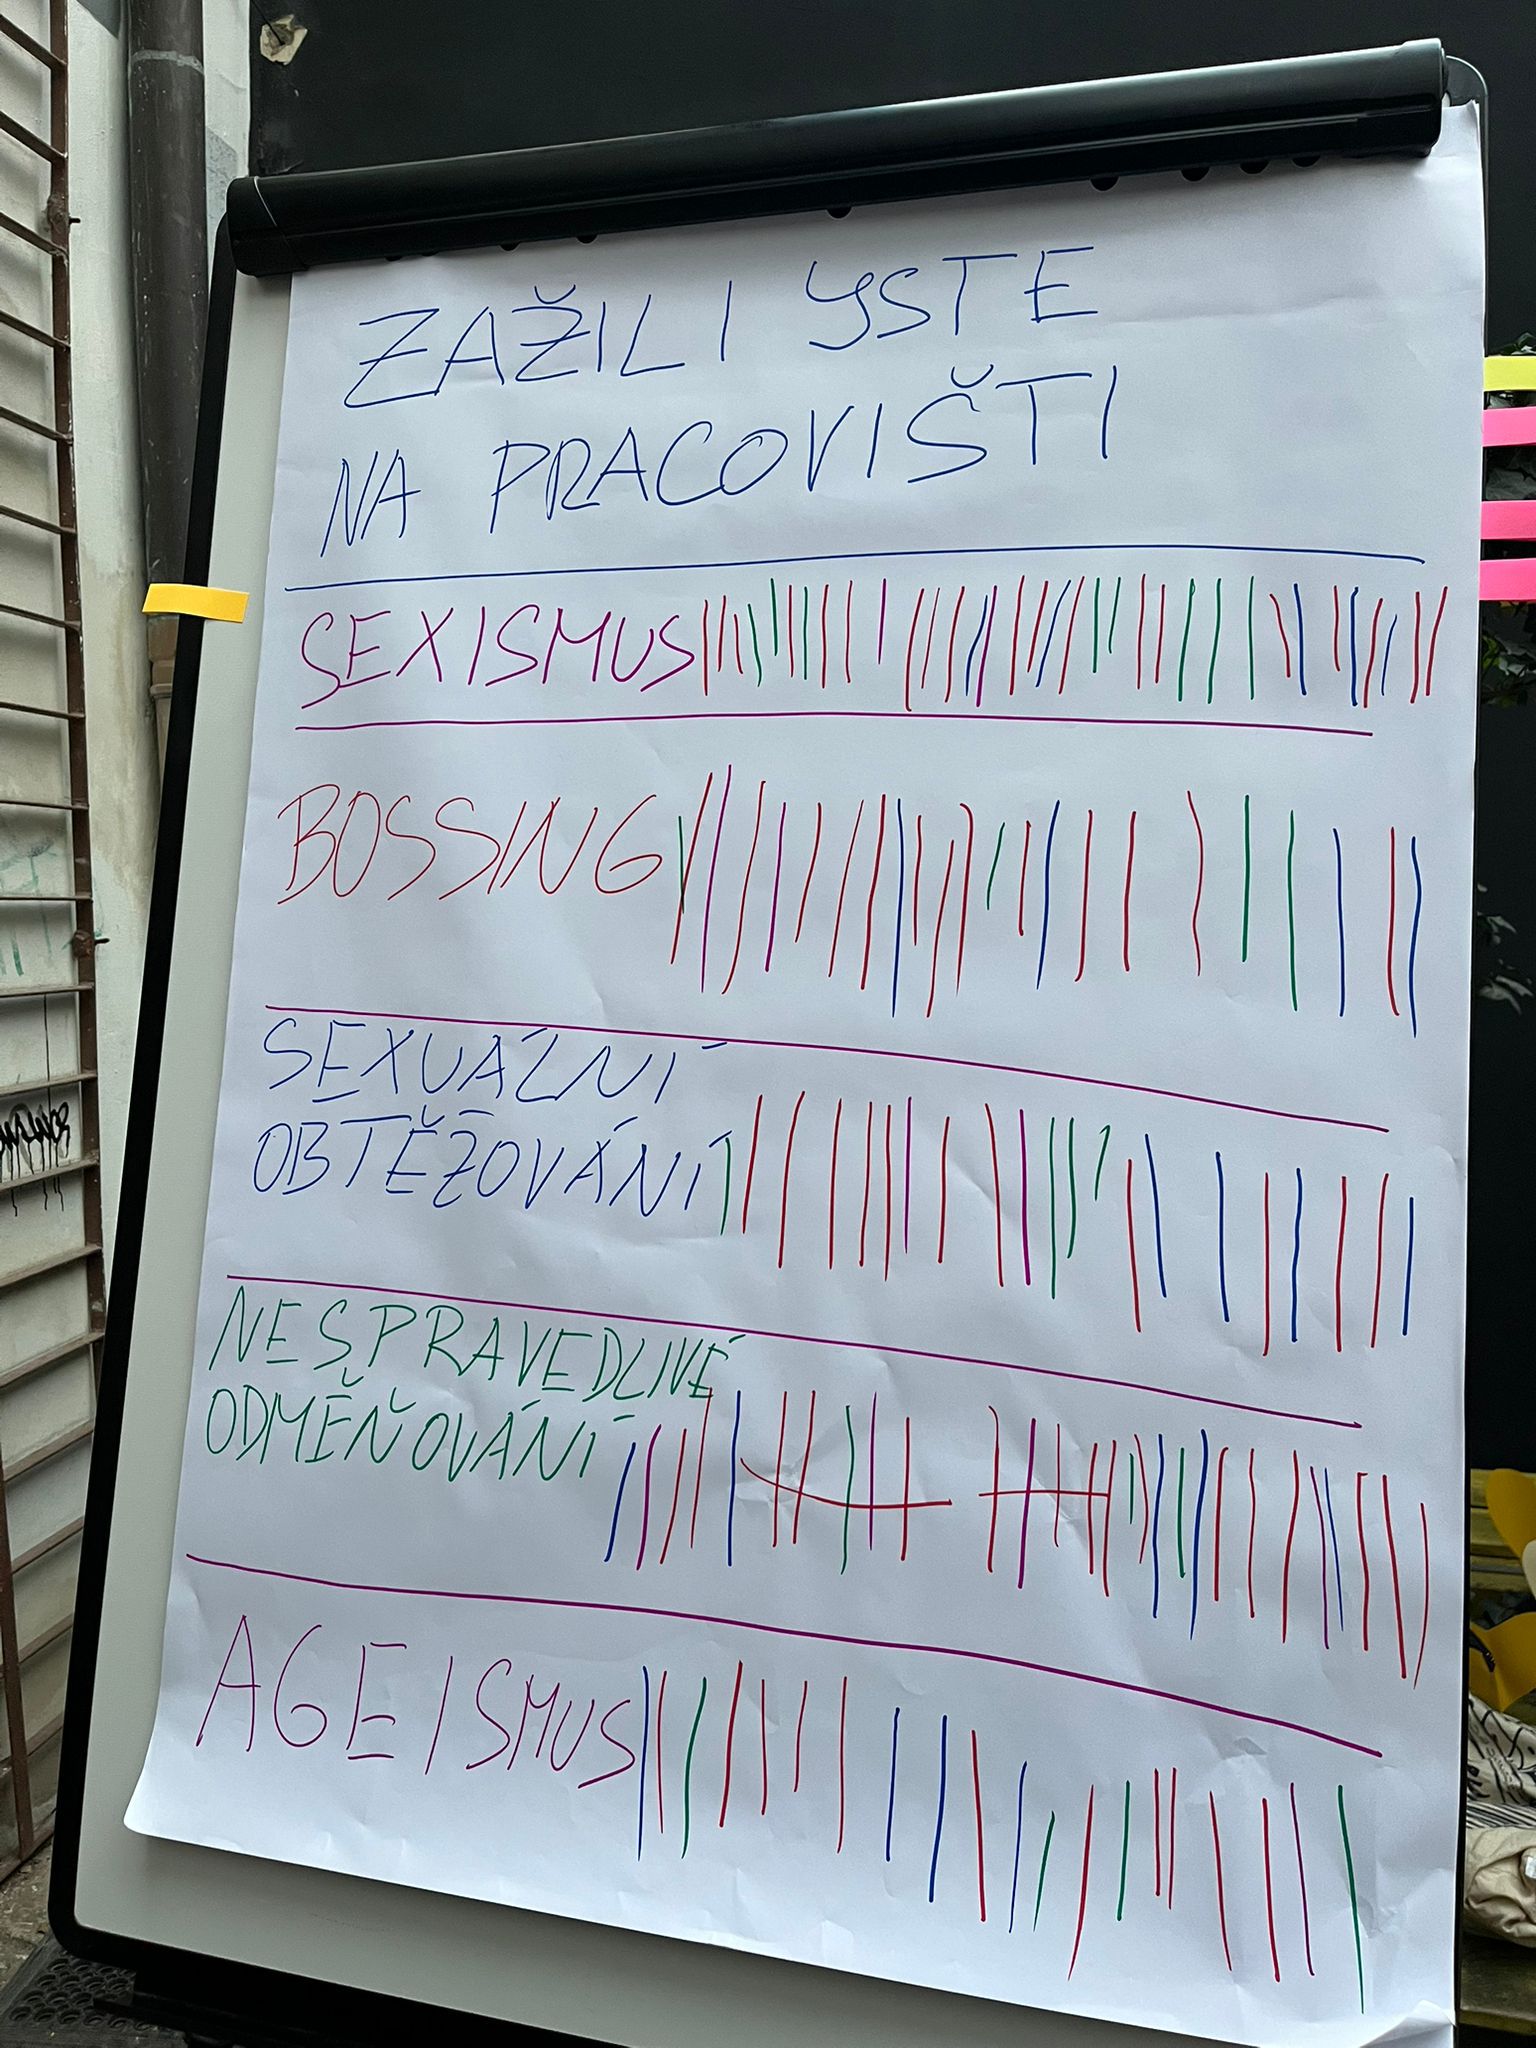 ZAŽILI JSTE
NA PRACOVIŠTI
SEXISMUS
BOSSING
SEXUÁLNÍ
OBTĚŽOVÁNÍ
NESPRAVEDLIVÉ
ODMĚŇOVÁNÍ
AGEISMUS